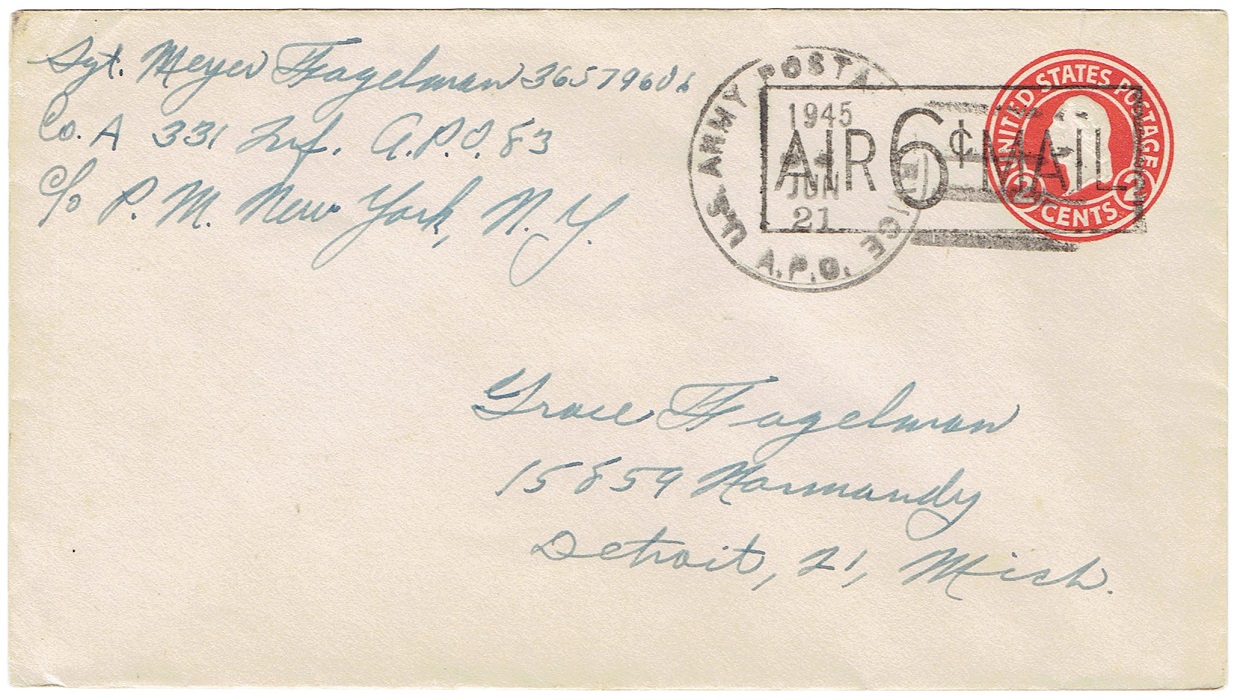 Sgt. Meyer Fagelman
Co. A 331 Inf. A.P.O. 83
c/o P. M. New York, N. Y.
U.S. ARMY POSTAL
A.P.O.
1945
JUN
21
AIR 6¢ MAIL
UNITED STATES POSTAGE
2 CENTS 2
Grace Fagelman
15859 Normandy
Detroit, 21, Mich.